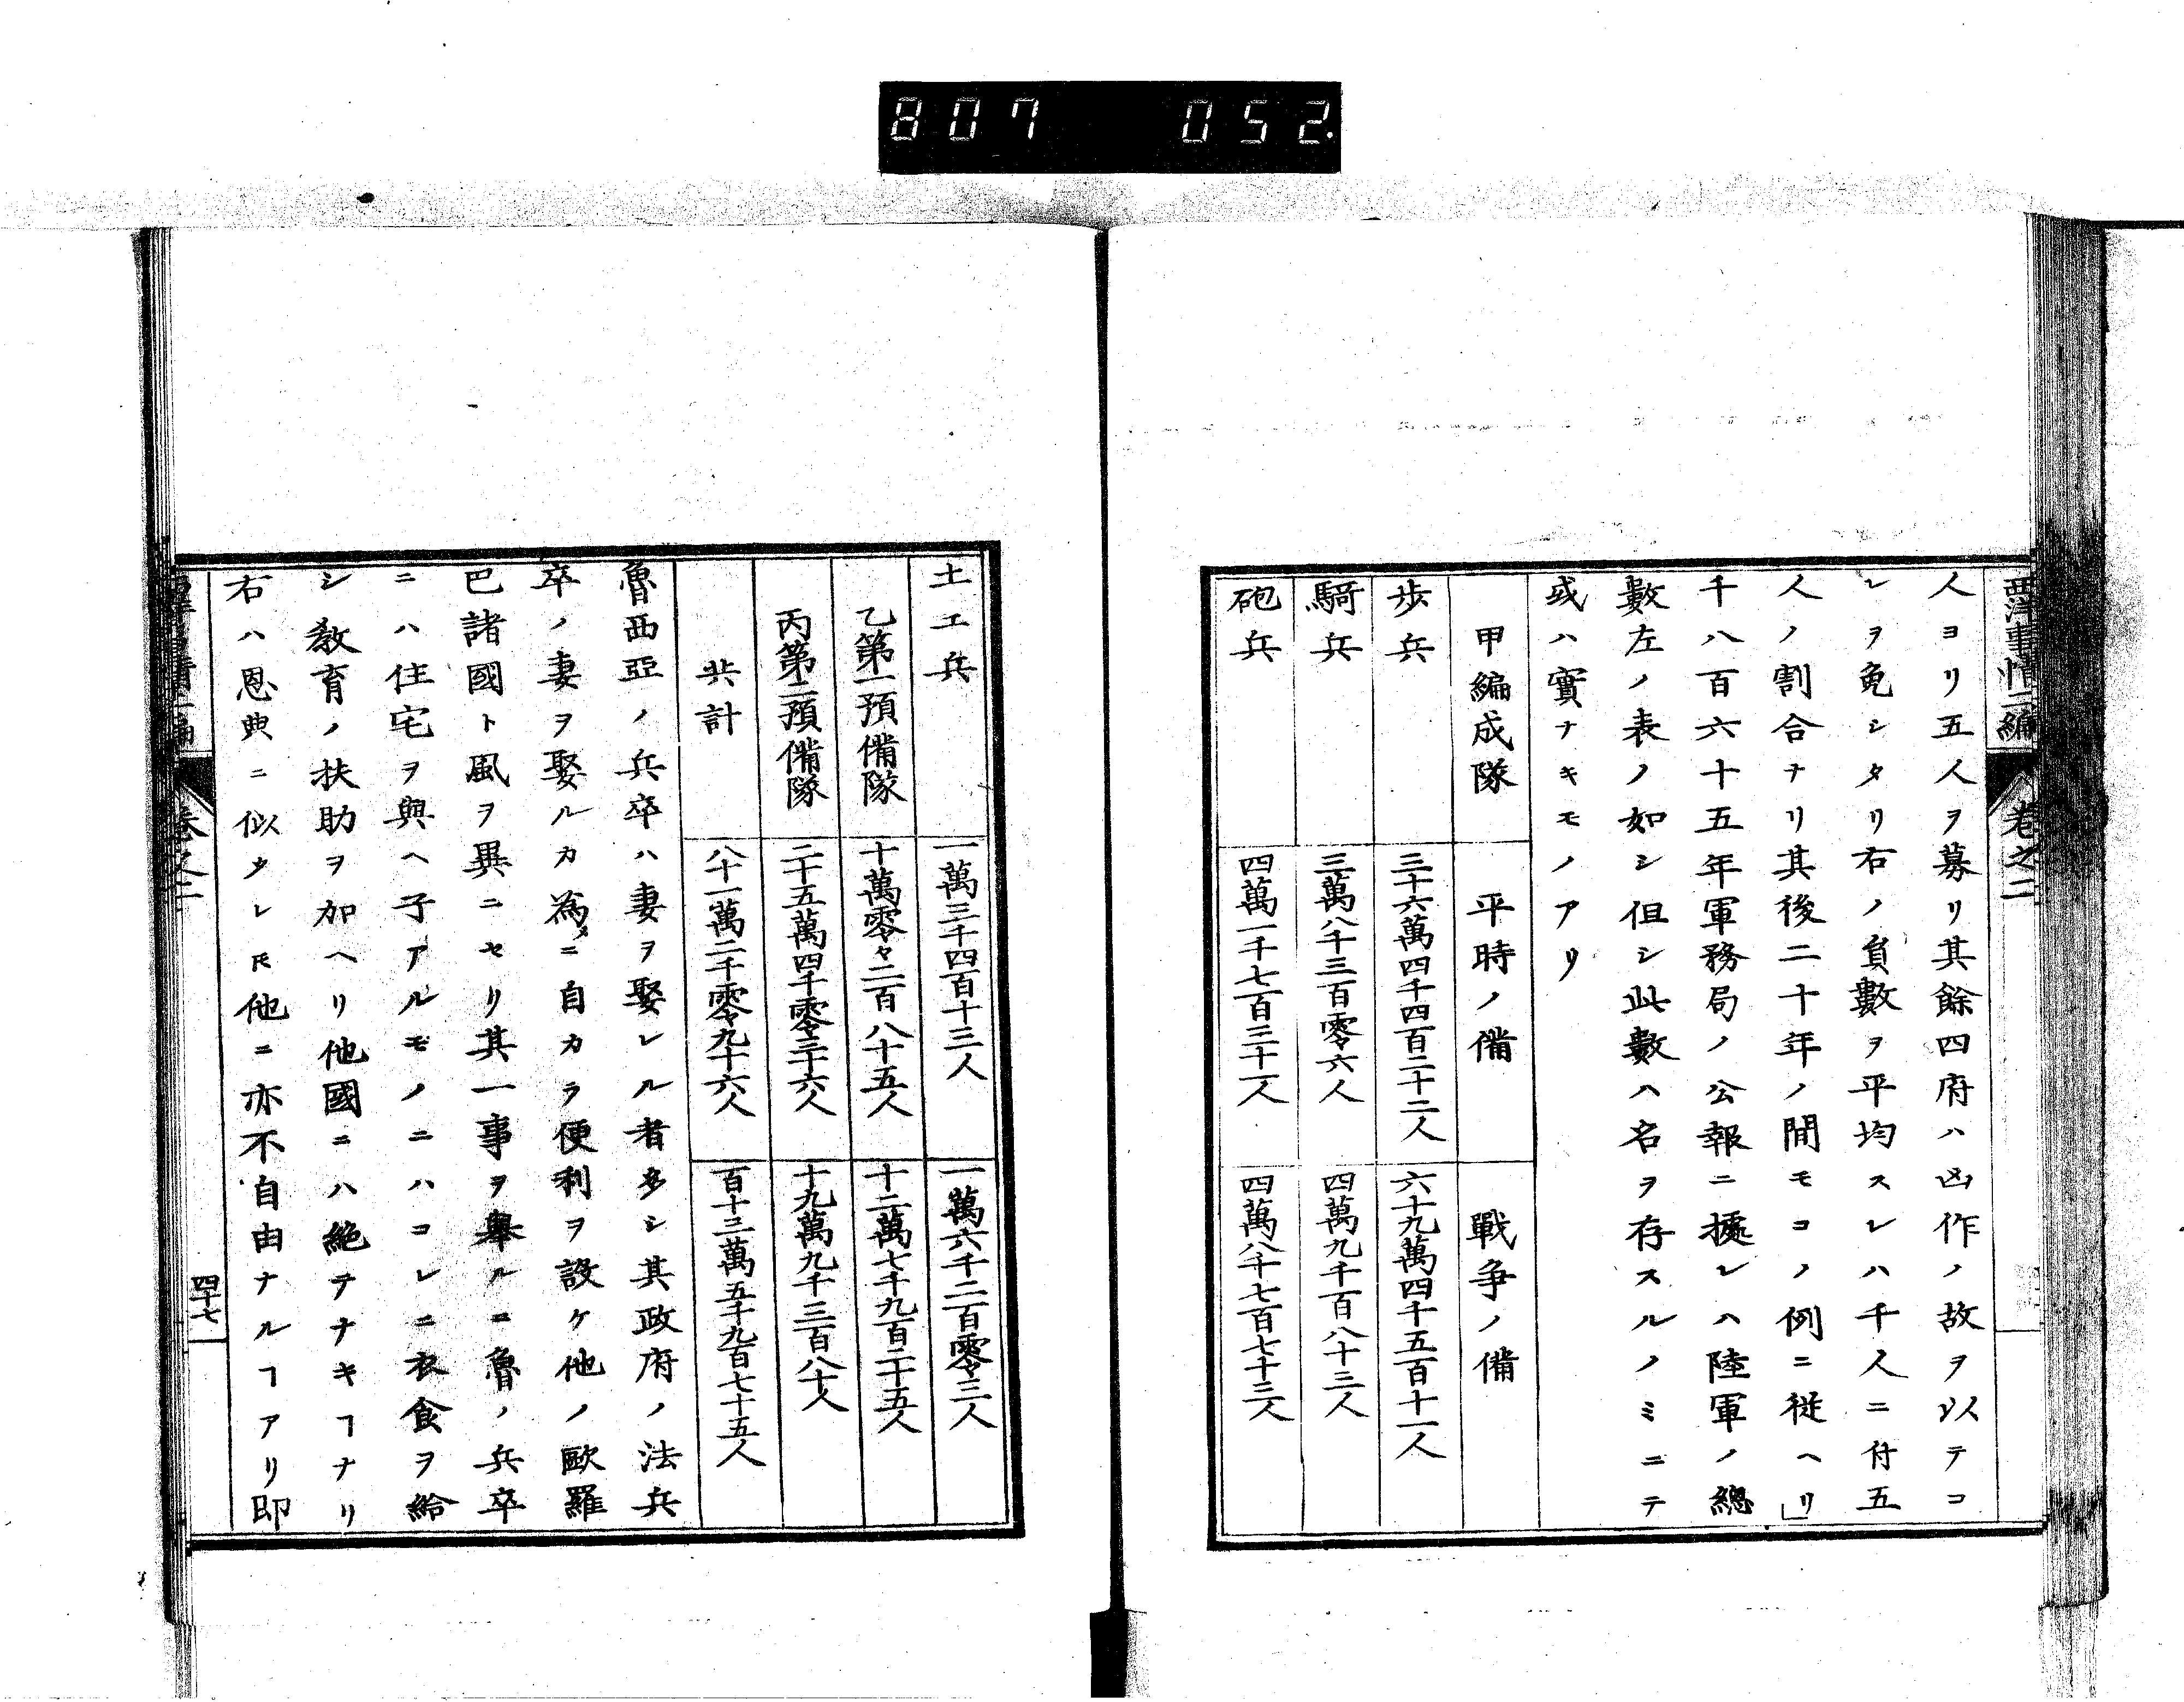 807 052.
西洋事情二編 卷之二
人ヨリ五人ヲ募リ其餘四府ハ凶作ノ故ヲ以テコ
レヲ免シタリ右ノ負數ヲ平均スレハ千人ニ付五
人ノ割合ナリ其後二十年ノ間モコノ例ニ從ヘリ」
千八百六十五年軍務局ノ公報ニ據レハ陸軍ノ總
數左ノ表ノ如シ但シ此數ハ名ヲ存スルノミニテ
或ハ實ナキモノアリ
甲編成隊 平時ノ備 戰争ノ備
歩兵 三十六萬四千四百二十二人 六十九萬四千五百十一人
騎兵 三萬八千三百零六人 四萬九千百八十三人
砲兵 四萬一千七百三十一人 四萬八千七百七十三人
土工兵 一萬三千四百十三人 一萬六千二百零三人
乙第一預備隊 十萬零々二百八十五人 十二萬七千九百二十五人
丙第二預備隊 二十五萬四千零々三十六人 十九萬九千三百八十人
共計 八十一萬二千零々九十六人 百十三萬五千九百七十五人
魯西亞ノ兵卒ハ妻ヲ娶レル者多シ其政府ノ法兵
卒ノ妻ヲ娶ルカ為メニ自カラ便利ヲ設ケ他ノ歐羅
巴諸國ト風ヲ異ニセリ其一事ヲ擧ルニ魯ノ兵卒
ニハ住宅ヲ與ヘ子アルモノニハコレニ衣食ヲ給
シ教育ノ扶助ヲ加ヘリ他國ニハ絶テナキヿナリ
右ハ恩典ニ似タレ𪜈他ニ亦不自由ナルヿアリ即
卷之二
四十七